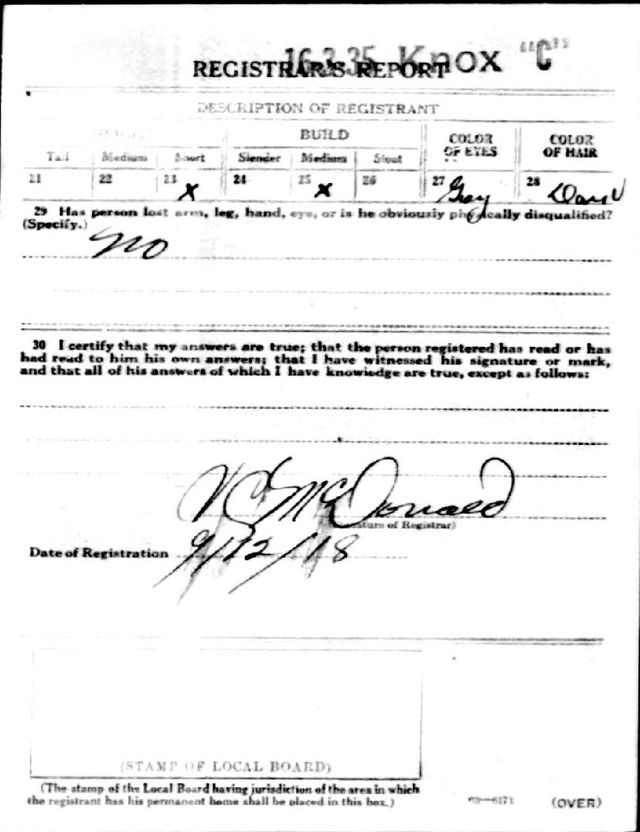 16-3-35 Knox "C"
REGISTRAR'S REPORT
DESCRIPTION OF REGISTRANT
HEIGHT BUILD COLOR OF EYES COLOR OF HAIR
Tall Medium Short Slender Medium Stout
21 22 23 x 24 25 x 26 27 Gray 28 Dark
29 Has person lost arm, leg, hand, eye, or is he obviously physically disqualified?
(Specify.)
No
30 I certify that my answers are true; that the person registered has read or has
had read to him his own answers; that I have witnessed his signature or mark,
and that all of his answers of which I have knowledge are true, except as follows:
McDonald
(Signature of Registrar)
Date of Registration 9/12/18
(STAMP OF LOCAL BOARD)
(The stamp of the Local Board having jurisdiction of the area in which
the registrant has his permanent home shall be placed in this box.)
03—6171 (OVER)